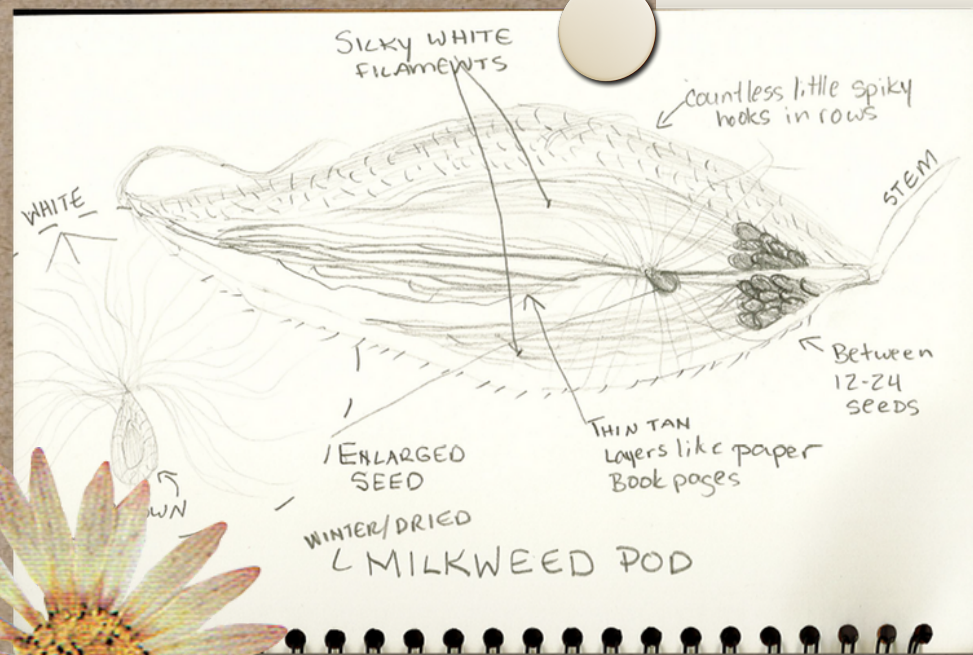 SILKY WHITE
FILAMENTS
Countless little spiky
hooks in rows
STEM
WHITE
Between
12-24
SEEDS
THIN TAN
Layers like paper
Book pages
1 ENLARGED
SEED
WINTER/DRIED
MILKWEED POD